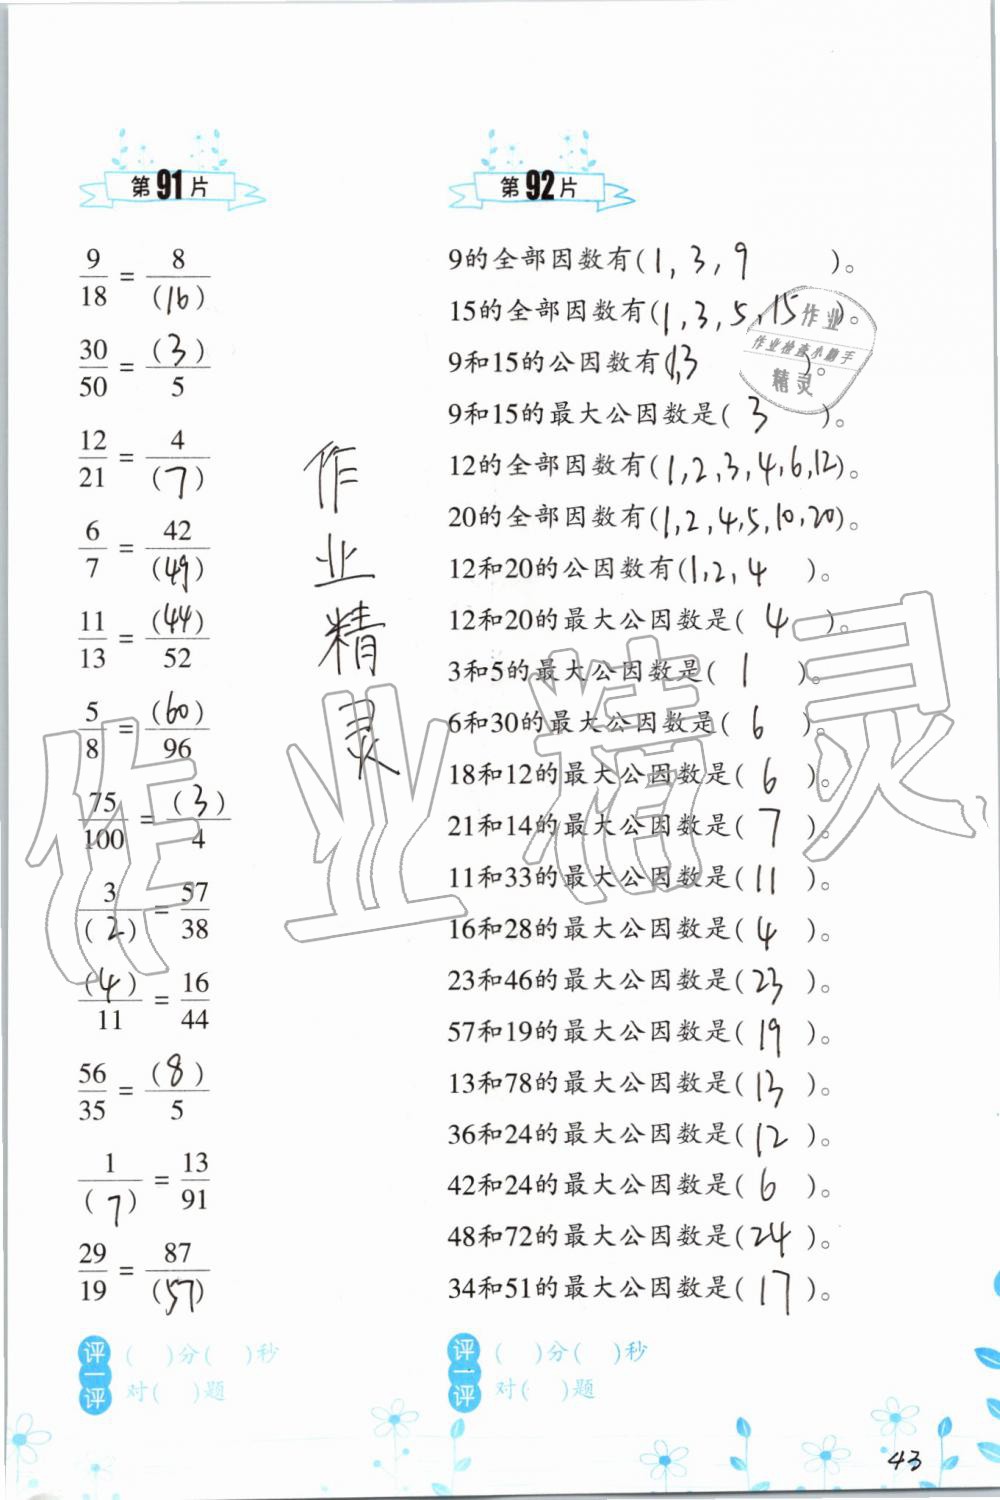 第91片
9/18 = 8/(16)
30/50 = (3)/5
12/21 = 4/(7)
6/7 = 42/(49)
11/13 = (44)/52
5/8 = (60)/96
75/100 = (3)/4
3/(2) = 57/38
(4)/11 = 16/44
56/35 = (8)/5
1/(7) = 13/91
29/19 = 87/(57)
评一评
( )分( )秒
对( )题
作业精灵
第92片
9的全部因数有(1,3,9)。
15的全部因数有(1,3,5,15)。
9和15的公因数有(1,3)。
9和15的最大公因数是(3)。
12的全部因数有(1,2,3,4,6,12)。
20的全部因数有(1,2,4,5,10,20)。
12和20的公因数有(1,2,4)。
12和20的最大公因数是(4)。
3和5的最大公因数是(1)。
6和30的最大公因数是(6)。
18和12的最大公因数是(6)。
21和14的最大公因数是(7)。
11和33的最大公因数是(11)。
16和28的最大公因数是(4)。
23和46的最大公因数是(23)。
57和19的最大公因数是(19)。
13和78的最大公因数是(13)。
36和24的最大公因数是(12)。
42和24的最大公因数是(6)。
48和72的最大公因数是(24)。
34和51的最大公因数是(17)。
评一评
( )分( )秒
对( )题
作业
作业检查小助手
精灵
作业精灵
43